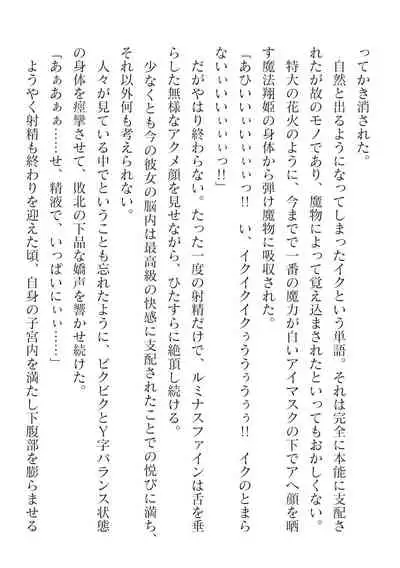 ってかき消された。
　自然と出るようになってしまったイクという単語。それは完全に本能に支配さ
れたが故のモノであり、魔物によって覚え込まされたといってもおかしくない。
　特大の花火のように、今までで一番の魔力が白いアイマスクの下でアヘ顔を晒
す魔法翔姫の身体から弾け魔物に吸収された。
「あひいぃいぃいぃぃっ!!　い、イクイクイクぅうぅうぅぅ!!　イクのとまら
ないぃいぃいぃぃっ!!」
　だがやはり終わらない。たった一度の射精だけで、ルミナスファインは舌を垂
らした無様なアクメ顔を見せながら、ひたすらに絶頂し続ける。
　少なくとも今の彼女の脳内は最高級の快感に支配されたことでの悦びに満ち、
それ以外何も考えられない。
　人々が見ている中でということも忘れたように、ビクビクとY字バランス状態
の身体を痙攣させて、敗北の下品な嬌声を響かせ続けた。
「あぁあぁぁ……せ、精液で、いっぱいにぃぃ……」
　ようやく射精も終わりを迎えた頃、自身の子宮内を満たし下腹部を膨らませる